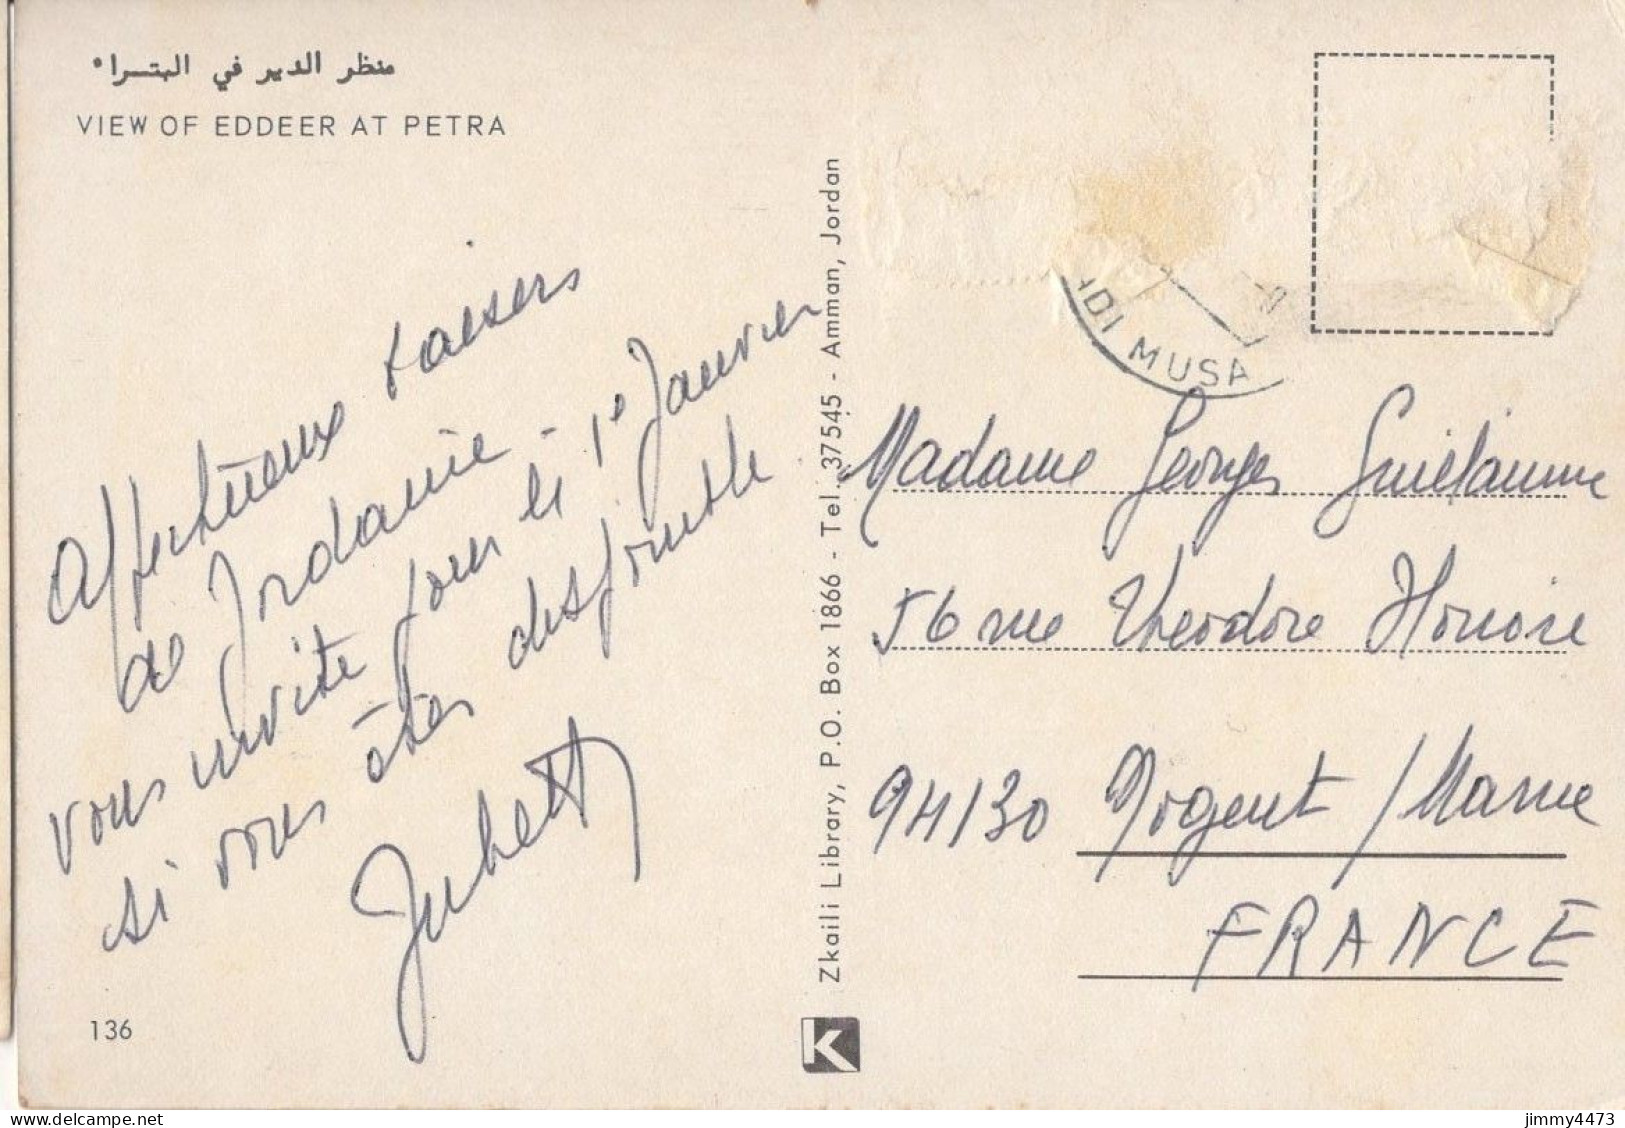 منظر الدير في البتراء
VIEW OF EDDEER AT PETRA
Affectueux baisers
de Jordanie -
vous invite pour le 1e Janvier
si vous êtes disponible
136
Zkaili Library, P.O. Box 1866 - Tel. 37545 - Amman, Jordan
K
ADI MUSA
Madame Georges Guillaume
56 rue Théodore Honoré
94130 Nogent / Marne
FRANCE
jimmy4473